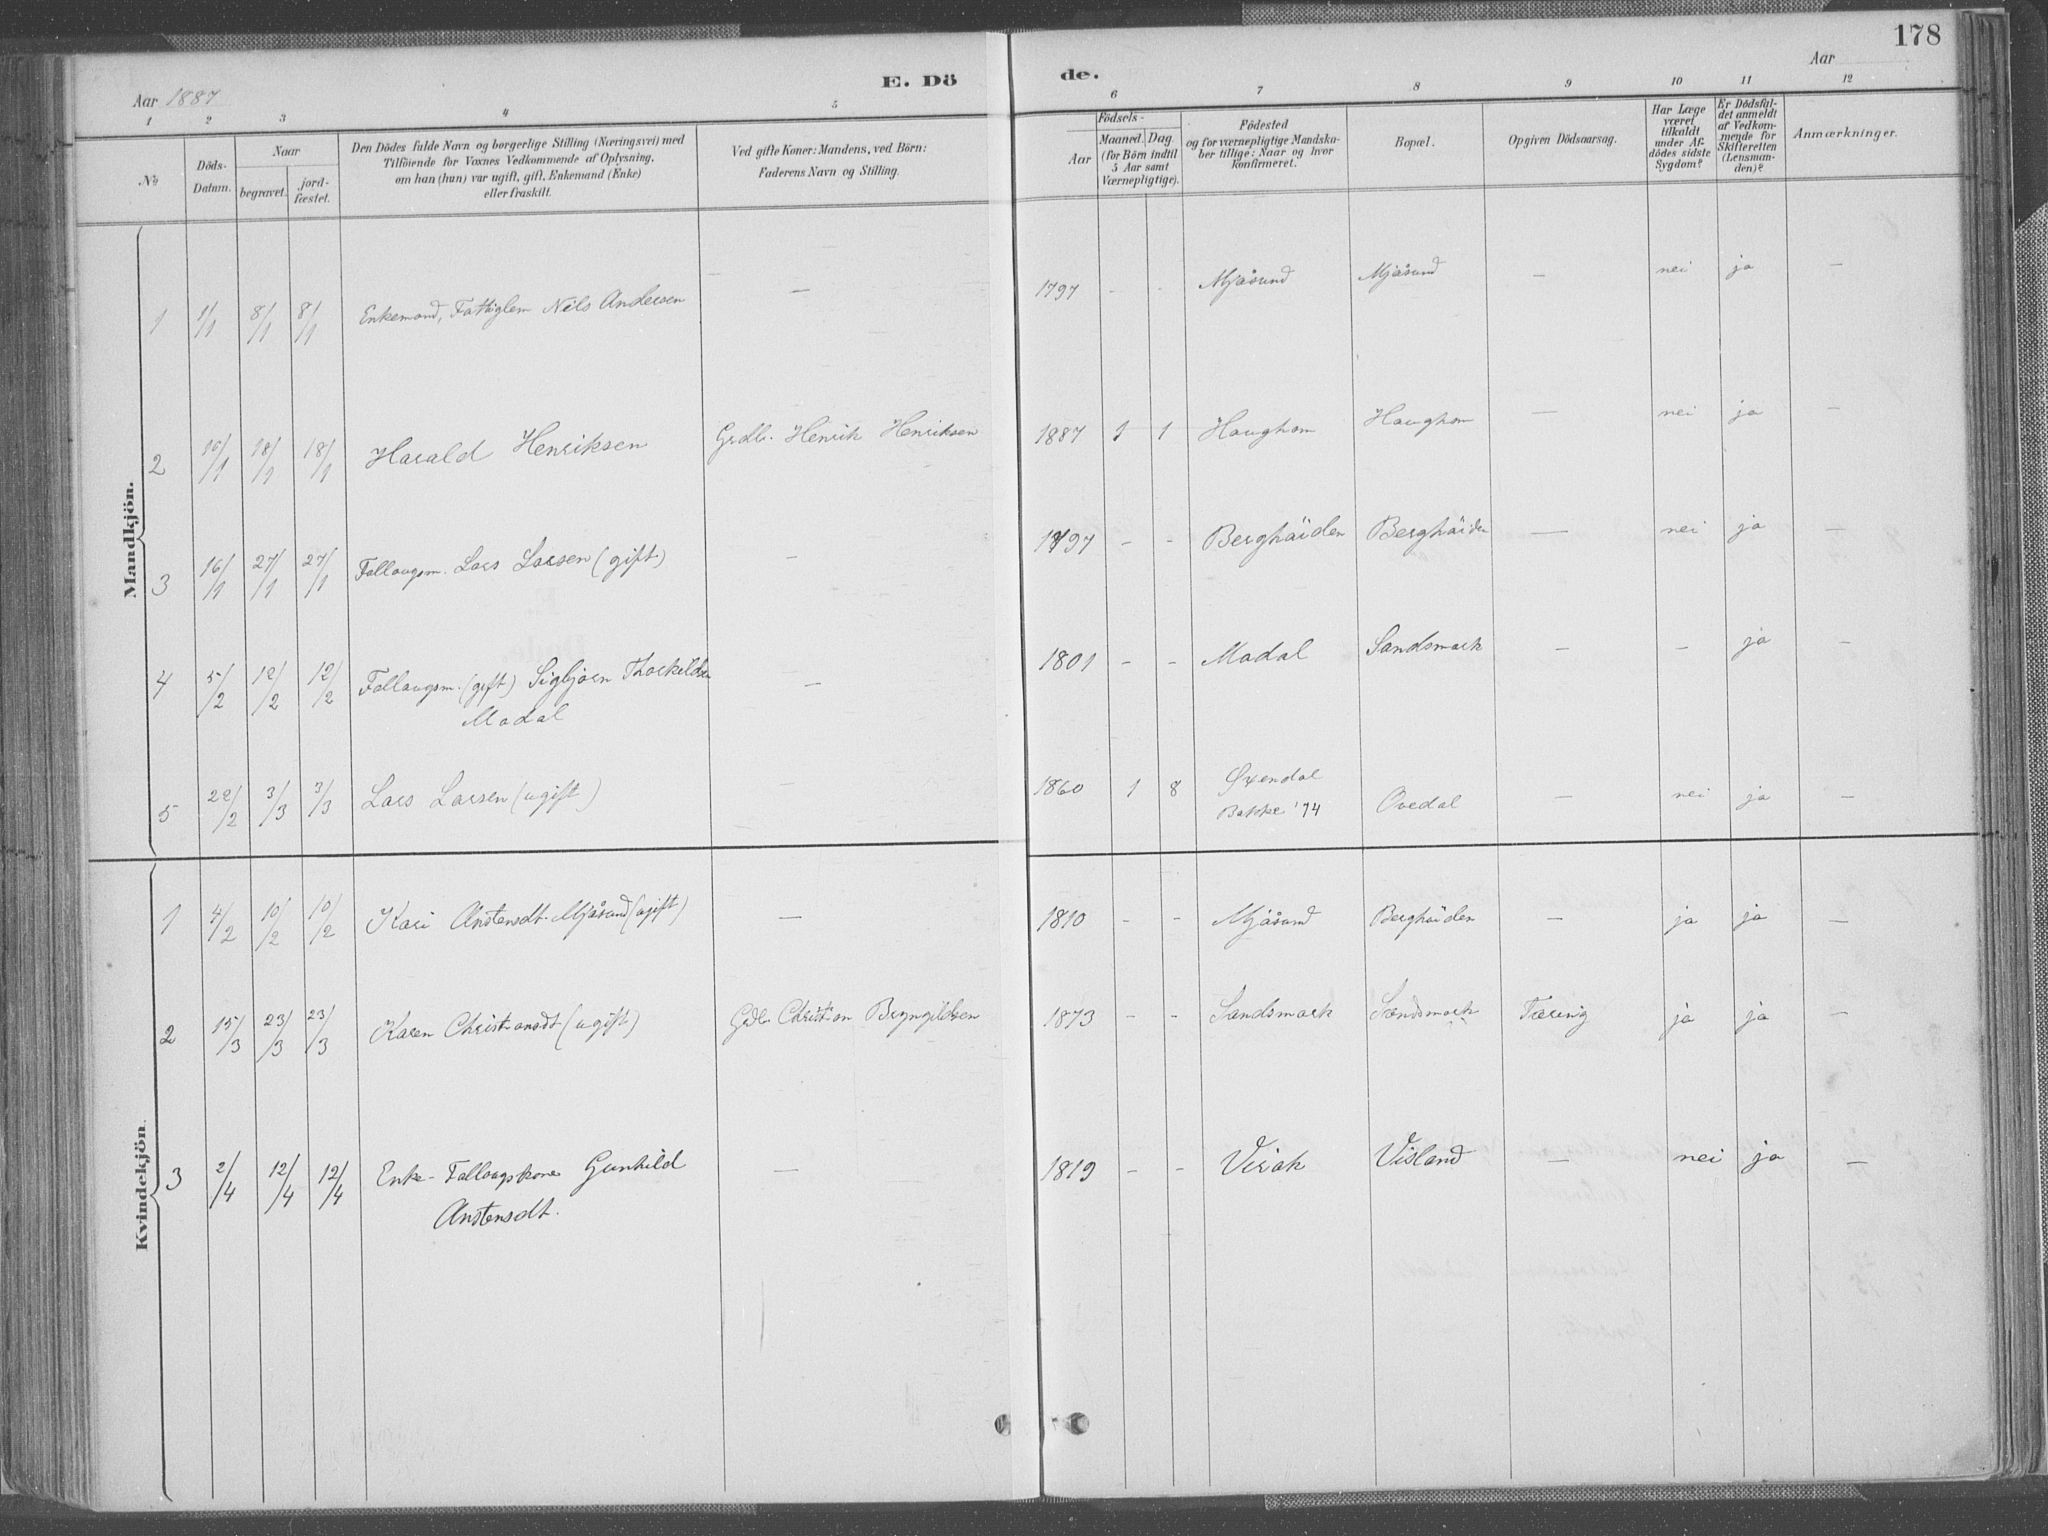 178
Aar 1887
E. Dö
de.
Aar
1 2 3 4 5 6 7 8 9 10 11 12
No
Döds-
Datum.
Naar
begravet.
jord-
fæstet.
Den Dödes fulde Navn og borgerlige Stilling (Næringsvei) med
Tilföiende for Voxnes Vedkommende af Oplysning,
om han (hun) var ugift, gift, Enkemand (Enke)
eller fraskilt.
Ved gifte Koner: Mandens, ved Börn:
Faderens Navn og Stilling.
Födsels-
Aar
Maaned.
Dag.
(for Börn indtil
5 Aar samt
Værnepligtige).
Födested
og for værnepligtige Mandska-
ber tillige: Naar og hvor
konfirmeret.
Bopæl.
Opgiven Dödsaarsag.
Har Læge
været
tilkaldt
under Af-
dödes sidste
Sygdom?
Er Dödsfal-
det anmeldt
af Vedkom-
mende for
Skifteretten
(Lensman-
den)?
Anmærkninger.
Mandkjön.
1 1/1 8/1 8/1 Enkemand, Fattiglem Nils Andersen — 1797 - - Mjåsund Mjåsund — nei ja —
2 10/1 18/1 18/1 Harald Henriksen Grdbr. Henrik Henriksen 1887 1 1 Haughom Haughom — nei ja —
3 16/1 27/1 27/1 Follaugsm. Lars Larsen (gift) — 1797 - - Berghäiden Berghäiden — nei ja —
4 5/2 12/2 12/2 Follaugsm. (gift) Sigbjørn Thorkildsen — 1801 - - Modal Sandsmark — - ja —
Modal
5 22/2 3/3 3/3 Lars Larsen (ugift) — 1860 1 8 Øxendal
Bakke '74 Ovedal — nei ja —
Kvindekjön.
1 4/2 10/2 10/2 Kari Anstensdt. Mjåsund (ugift) — 1810 - - Mjåsund Berghäiden — ja ja —
2 15/3 23/3 23/3 Karen Christiansdt (ugift) Grdb. Christian Bryngildsen 1873 - - Sandsmark Sandsmark Tæring ja ja —
3 2/4 12/4 12/4 Enke- Follaugskone Gunhild — 1819 - - Virak Visland — nei ja —
Anstensdt.